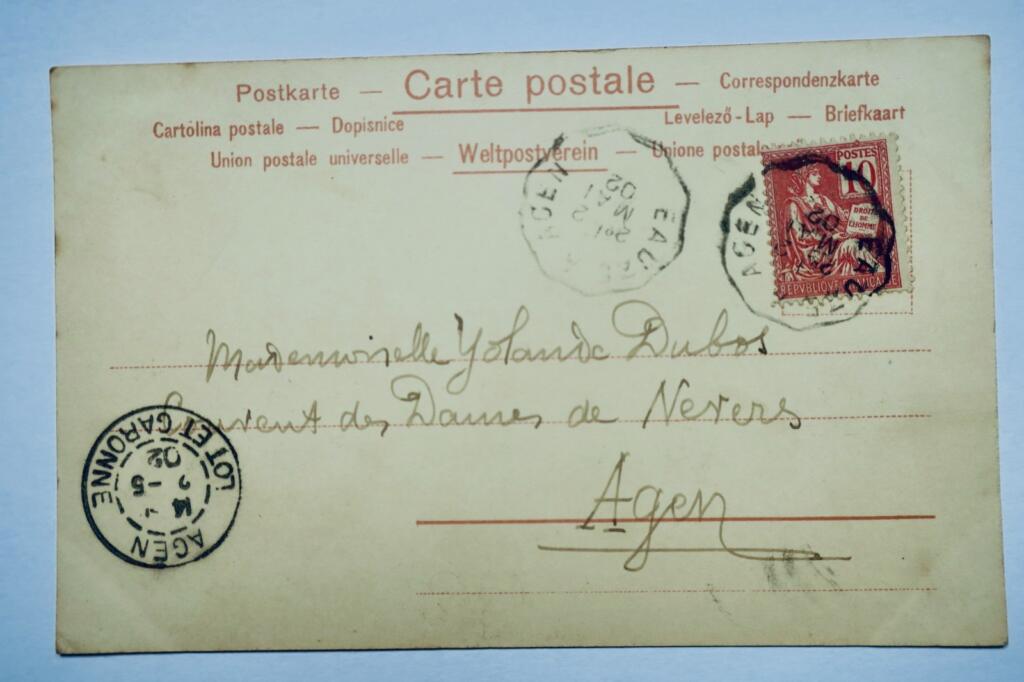 Postkarte — Carte postale — Correspondenzkarte
Cartolina postale — Dopisnice Levelező-Lap — Briefkaart
Union postale universelle — Weltpostverein — Unione postale
POSTES
10
DROITS
DE
L'HOMME
REPVBLIQUE FRANÇAISE
AGEN
MAI
02
EAUZE
AGEN
MAI
02
EAUZE
Mademoiselle Yolande Dubos
Couvent des Dames de Nevers
Agen
AGEN
14
-5
02
LOT ET GARONNE